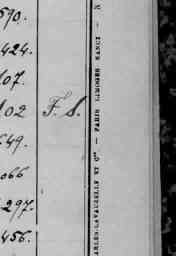 570.
424.
107.
102 F. S.
549.
066
297.
456.
CHARLES-LAVAUZELLE ET Cie — PARIS LIMOGES NANCI —